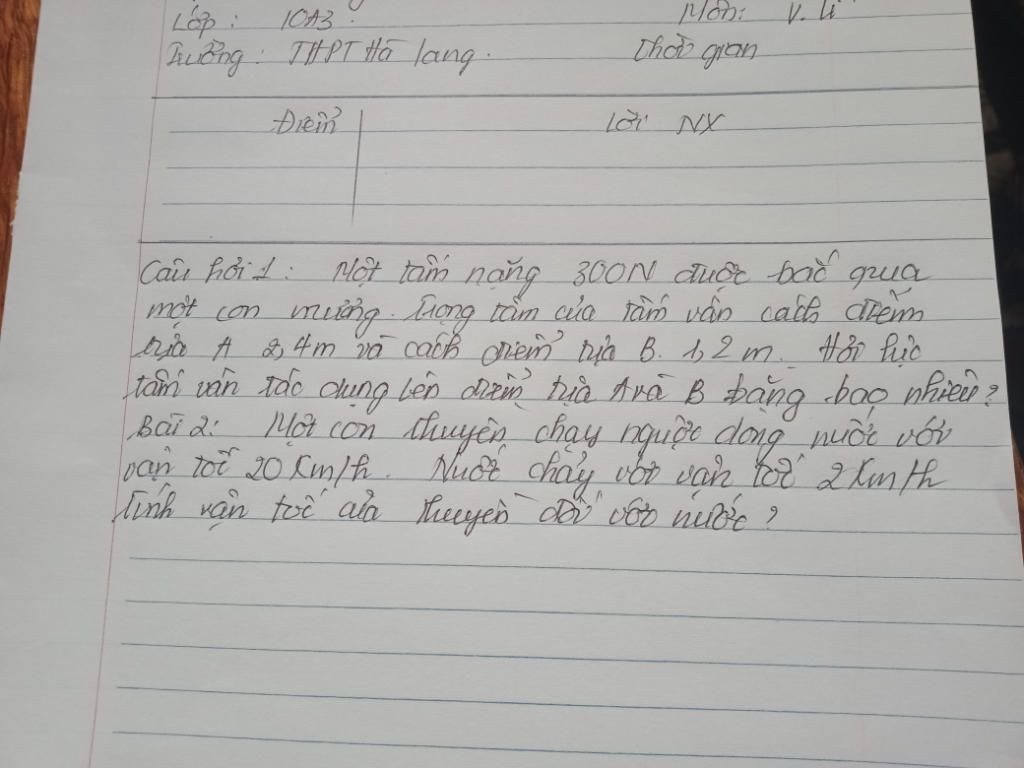 Lớp : 10A3. Môn: V. lí
Trường : THPT Hà lang. Thời gian
Điểm lời NX
Câu hỏi 1 : Một tấm nặng 300N được bắc qua
một con mương. Trọng tâm của tấm ván cách điểm
tựa A 2,4m và cách điểm tựa B. 1,2 m. Hỏi lực
tấm ván tác dụng lên điểm tựa A và B bằng bao nhiêu?
Bài 2: Một con thuyền chạy ngược dòng nước với
vận tốc 20 Km/h. Nước chảy với vận tốc 2 Km/h
Tính vận tốc của thuyền đối với nước ?